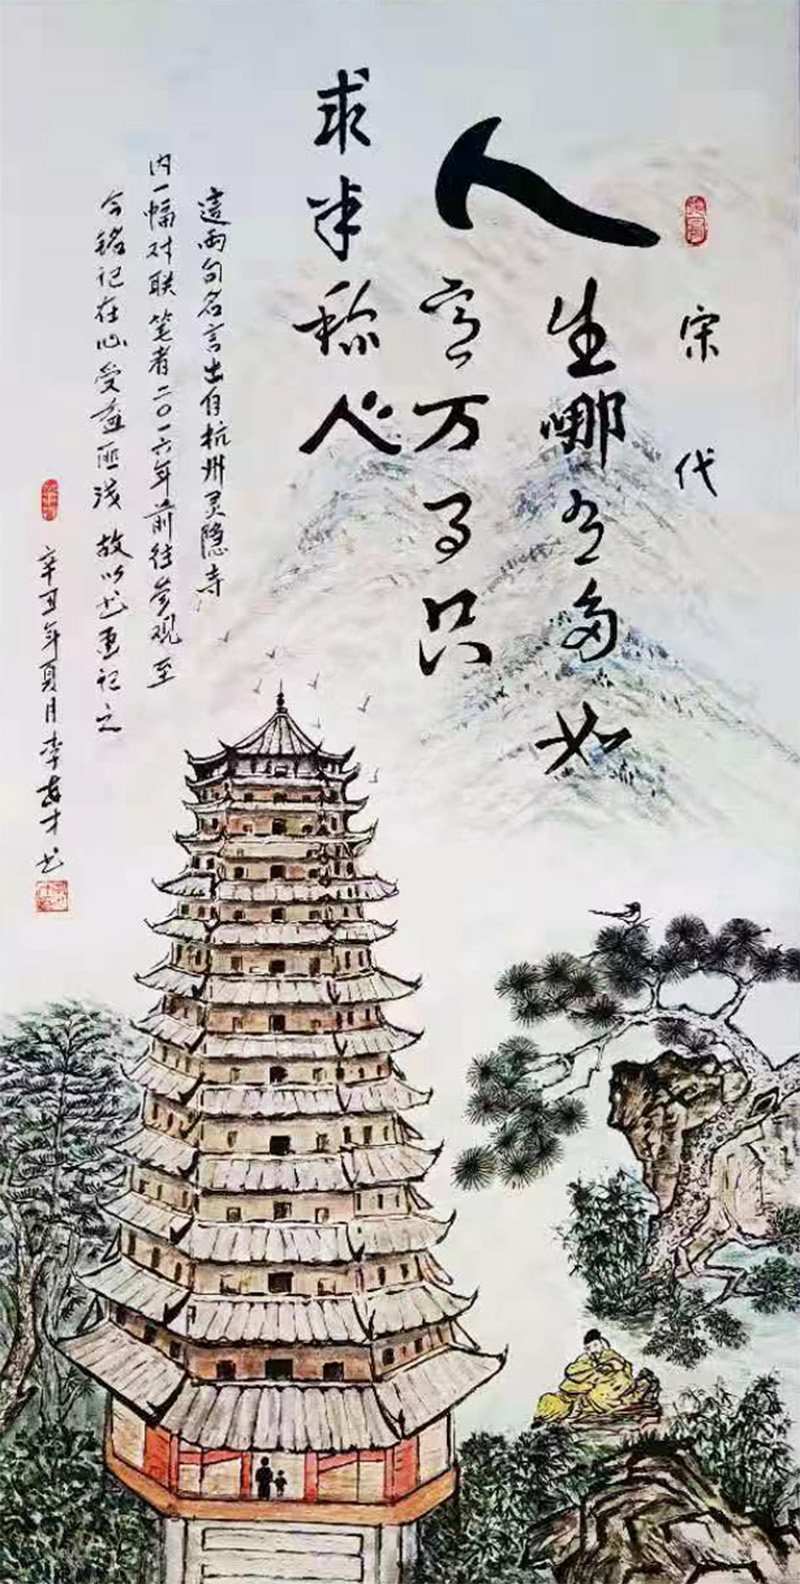 宋代
人生哪能多如
意万事只
求半称心
這两句名言出自杭州灵隐寺
内一幅对联笔者二〇一六年前往参观至
今铭记在心受益匪浅故以书画记之
辛丑年夏月李才书